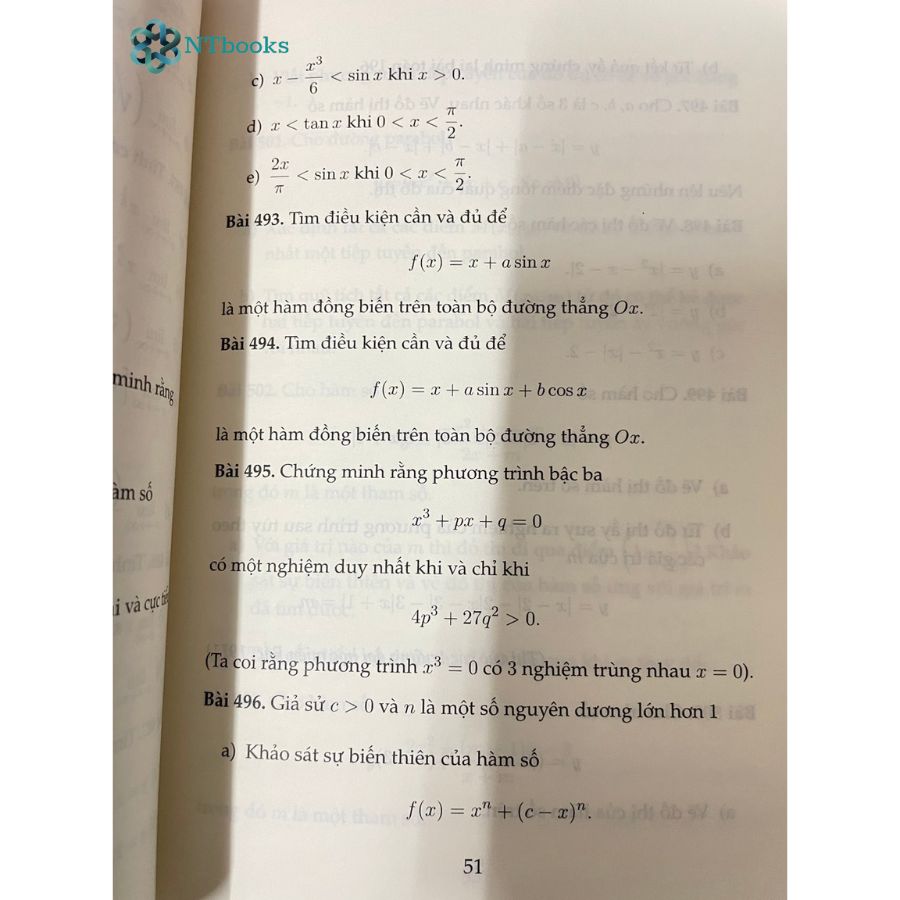 NTbooks
c) x − x³/6 < sin x khi x > 0.
d) x < tan x khi 0 < x < π/2.
e) 2x/π < sin x khi 0 < x < π/2.
Bài 493. Tìm điều kiện cần và đủ để
f(x) = x + a sin x
là một hàm đồng biến trên toàn bộ đường thẳng Ox.
Bài 494. Tìm điều kiện cần và đủ để
f(x) = x + a sin x + b cos x
là một hàm đồng biến trên toàn bộ đường thẳng Ox.
Bài 495. Chứng minh rằng phương trình bậc ba
x³ + px + q = 0
có một nghiệm duy nhất khi và chỉ khi
4p³ + 27q² > 0.
(Ta coi rằng phương trình x³ = 0 có 3 nghiệm trùng nhau x = 0).
Bài 496. Giả sử c > 0 và n là một số nguyên dương lớn hơn 1
a) Khảo sát sự biến thiên của hàm số
f(x) = xⁿ + (c − x)ⁿ.
51
minh rằng
àm số
i và cực